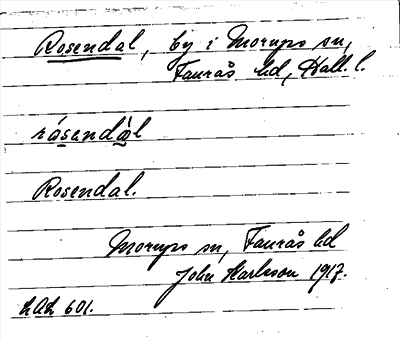 Rosendal, by i Morups sn,
Faurås hd, Hall. l.
rósendàl
Rosendal.
Morups sn, Faurås hd
John Karlsson 1917.
LAL 601.